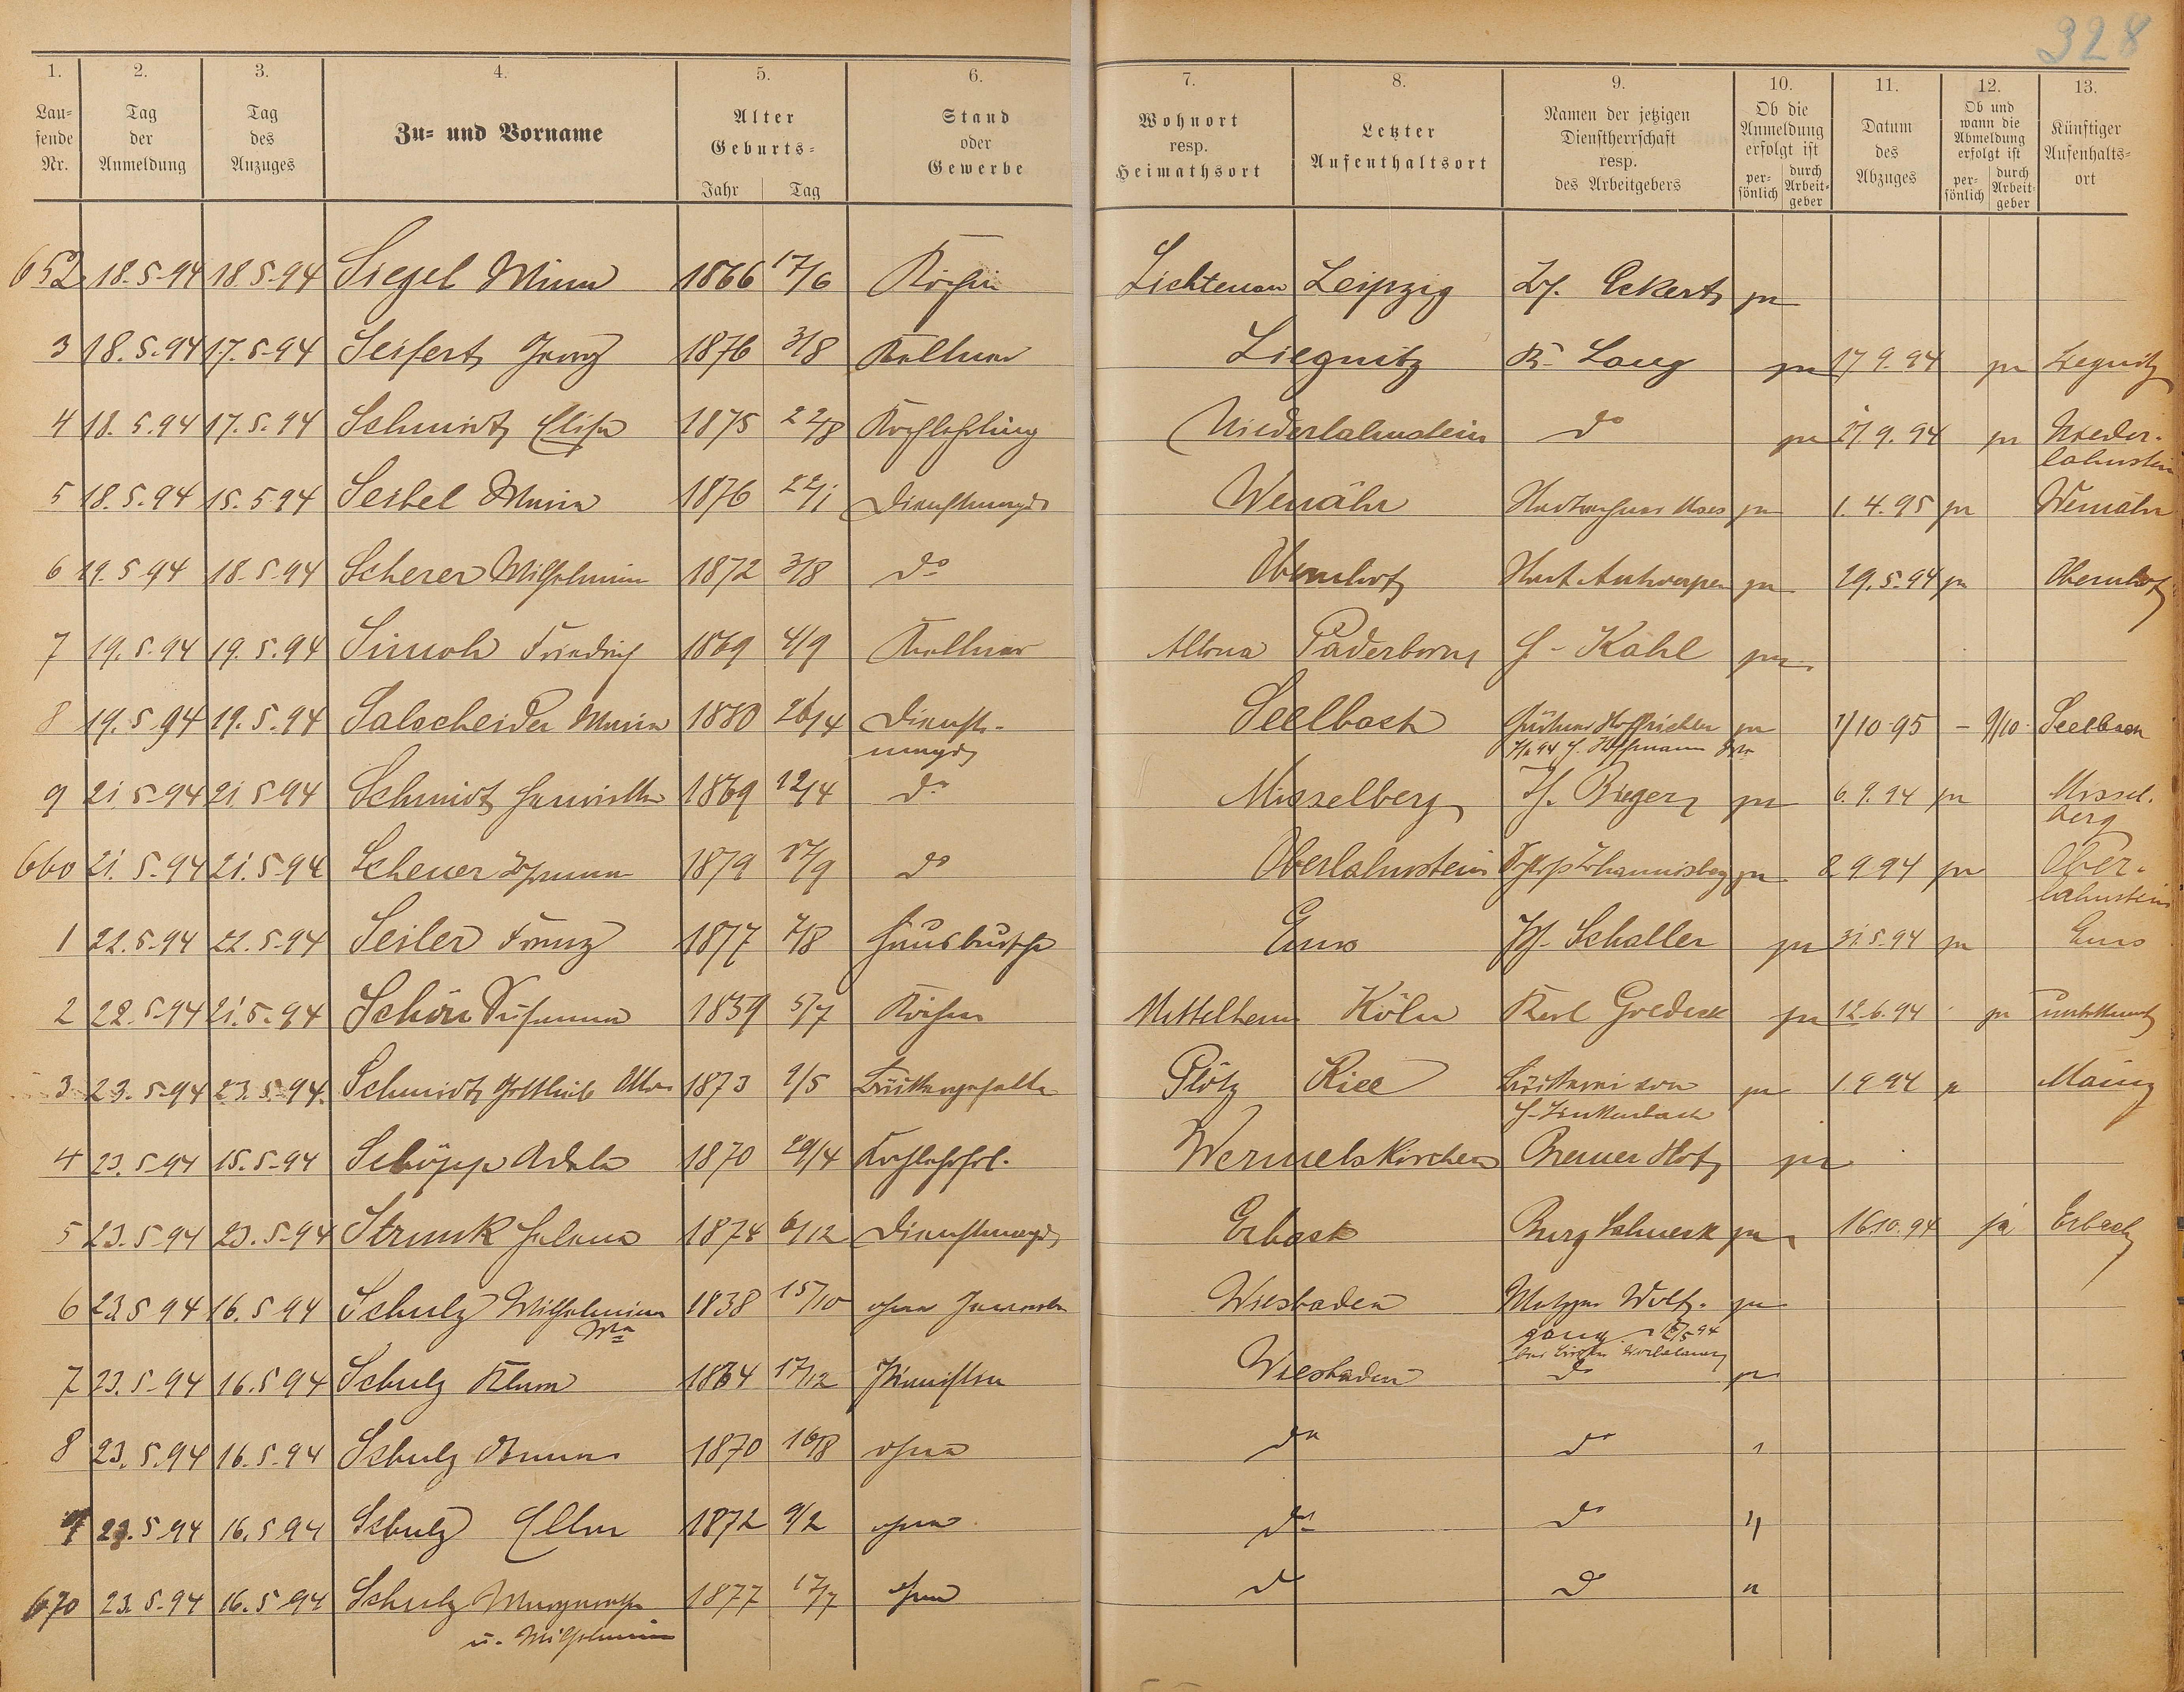 328
1. 2. 3. 4. 5. 6. 7. 8. 9. 10. 11. 12. 13.
Lau-
fende
Nr.
Tag
der
Anmeldung
Tag
des
Anzuges
Zu- und Vorname
Alter
Geburts-
Jahr Tag
Stand
oder
Gewerbe
Wohnort
resp.
Heimathsort
Letzter
Aufenthaltsort
Namen der jetzigen
Dienstherrschaft
resp.
des Arbeitgebers
Ob die
Anmeldung
erfolgt ist
per-
sönlich
durch
Arbeit-
geber
Datum
des
Abzuges
Ob und
wann die
Abmeldung
erfolgt ist
per-
sönlich
durch
Arbeit-
geber
Künftiger
Aufenhalts-
ort
652 18.5.94 18.5.94 Siegel Minna 1866 17/6 Köchin Lichtenau Leipzig Eckert ja
3 18.5.94 17.5.94 Seifert Georg 1876 3/8 Kellner Liegnitz K. Lang ja 17 9.94 ja Liegnitz
4 18.5.94 17.5.94 Schmidt Elise 1875 22/8 Kochlehrling Niederlahnstein do ja 17 9.94 ja Nieder-
lahnstein
5 18.5.94 15.5.94 Seibel Maria 1876 22/1 Dienstmagd Weinähr ja 1.4.95 ja Weinähr
6 19.5.94 18.5.94 Scherer Wilhelmine 1872 3/8 do Obernhof ja 29.5.94 ja Obernhof
7 19.5.94 19.5.94 Simoh Friedrich 1869 4/9 Kellner Altona Paderborn H. Kahl ja
8 19.5.94 19.5.94 Salscheider Maria 1880 26/4 Dienst-
magd Seelbach Hoffrichter ja 1/10 95 - 9/10 Seelbach
Hoffmann
9 21 5.94 21 5 94 Schmidt Henriette 1869 12/4 do Misselberg Bieger ja 6.9.94 ja Missel-
berg
660 21.5.94 21.5.94 Scheuer Johanna 1879 17/9 do Oberlahnstein Schloß Johannisberg ja 2 9.94 ja Ober-
lahnstein
1 22.5.94 22.5.94 Seiler Franz 1877 7/8 Hausbursche Ems Schaller ja 31.5.94 ja Ems
2 22.5.94 21.5.94 Schön Susanna 1859 5/7 Köchin Mittelheim Köln Karl ja 12.6.94 ja unbekannt
3 23.5.94 23.5.94. Schmidt Gottlieb Otto 1873 1/5 Plötz Kiel ja 1.9 94 Mainz
H. Linkenbach
4 23.5.94 15.5.94 Schöpp Adele 1870 29/4 Wermelskirchen Bremer Hof ja
5 23.5.94 23.5.94 Strunk Helena 1874 6/12 Dienstmagd Erbach Burg Lahneck ja 16.10.94 ja Erbach
6 23.5 94 16.5 94 Schulz Wilhelmine 1838 15/10 ohne Gewerbe Wiesbaden Metzger Wolf- ja
gang
7 23.5.94 16.5 94 Schulz Klara 1864 17/12 Pianistin Wiesbaden do ja
8 23.5.94 16.5.94 Schulz Anna 1870 16/8 ohne do do "
9 23.5 94 16.5 94 Schulz Ella 1872 9/2 ohne do do "
670 23.5.94 16.5 94 Schulz Margarethe 1877 17/7 ohne do do "
u. Wilhelmine